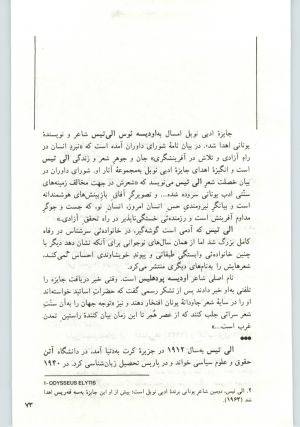 جایزهٔ ادبی نوبل امسال به‌اودیسه ئوس الی‌تیس شاعر و نویسندهٔ
یونانی اهدا شد. در بیان نامهٔ شورای داوران آمده است که «نبرد انسان در
راه آزادی و تلاش در آفرینشگری» جان و جوهر شعر و زندگی الی تیس
است و انگیزهٔ اهدای جایزهٔ ادبی نوبل به‌مجموعهٔ آثار او. شورای داوران در
بیان خصلت شعر الی تیس می‌نویسد که «شعرش در جهت مخالف زمینه‌های
سنّتی ادب یونانی سروده شده...» و تصویرگر آفاق بازبینش‌های هوشمندانه
است و بیانگر نیرومندی حس انسان امروز، انسان نو، که جست و جوگر
مداوم آفرینش است و رزمنده‌ئی خستگی‌ناپذیر در راه تحقق آزادی.»
الی تیس که آدمی است گوشه‌گیر، در خانواده‌ئی سرشناس در رفاه
کامل بزرگ شد اما از همان سال‌های نوجوانی برای آنکه نشان دهد دیگر با
چنین خانواده‌ئی وابستگی طبقاتی و پیوند خویشاوندی احساس نمی‌کند،
شعرهایش را به‌نام‌های دیگری منتشر می‌کرد.
نام اصلی شاعر اودیسه پودهلیس است. وقتی خبر دریافت جایزه را
تلفنی به‌او خبر دادند پس از تشکر رسمی گفت که حضرات اساتید خواسته‌اند
او را در سایهٔ شعر جاودانهٔ یونان افتخار دهند و نیز «توجه جهان را به‌آن سنّتِ
شعر سرائی جلب کنند که از عصر هُمر تا این زمان بیان کنندهٔ راستین تمدن
غرب است...»
●●●
الی تیس به‌سال ۱۹۱۲ در جزیرهٔ کرت به‌دنیا آمد، در دانشگاه آتن
حقوق و علوم سیاسی خواند و در پاریس تحصیل زبان‌شناسی کرد. در ۱۹۴۰
1- ODYSSEUS ELYTIS
۲. الی تیس، دومین شاعر یونانی برندهٔ ادبی نوبل است؛ پیش از او این جایزهٔ به‌سه فه‌ریس اهدا
شد (۱۹۶۳)
۷۳